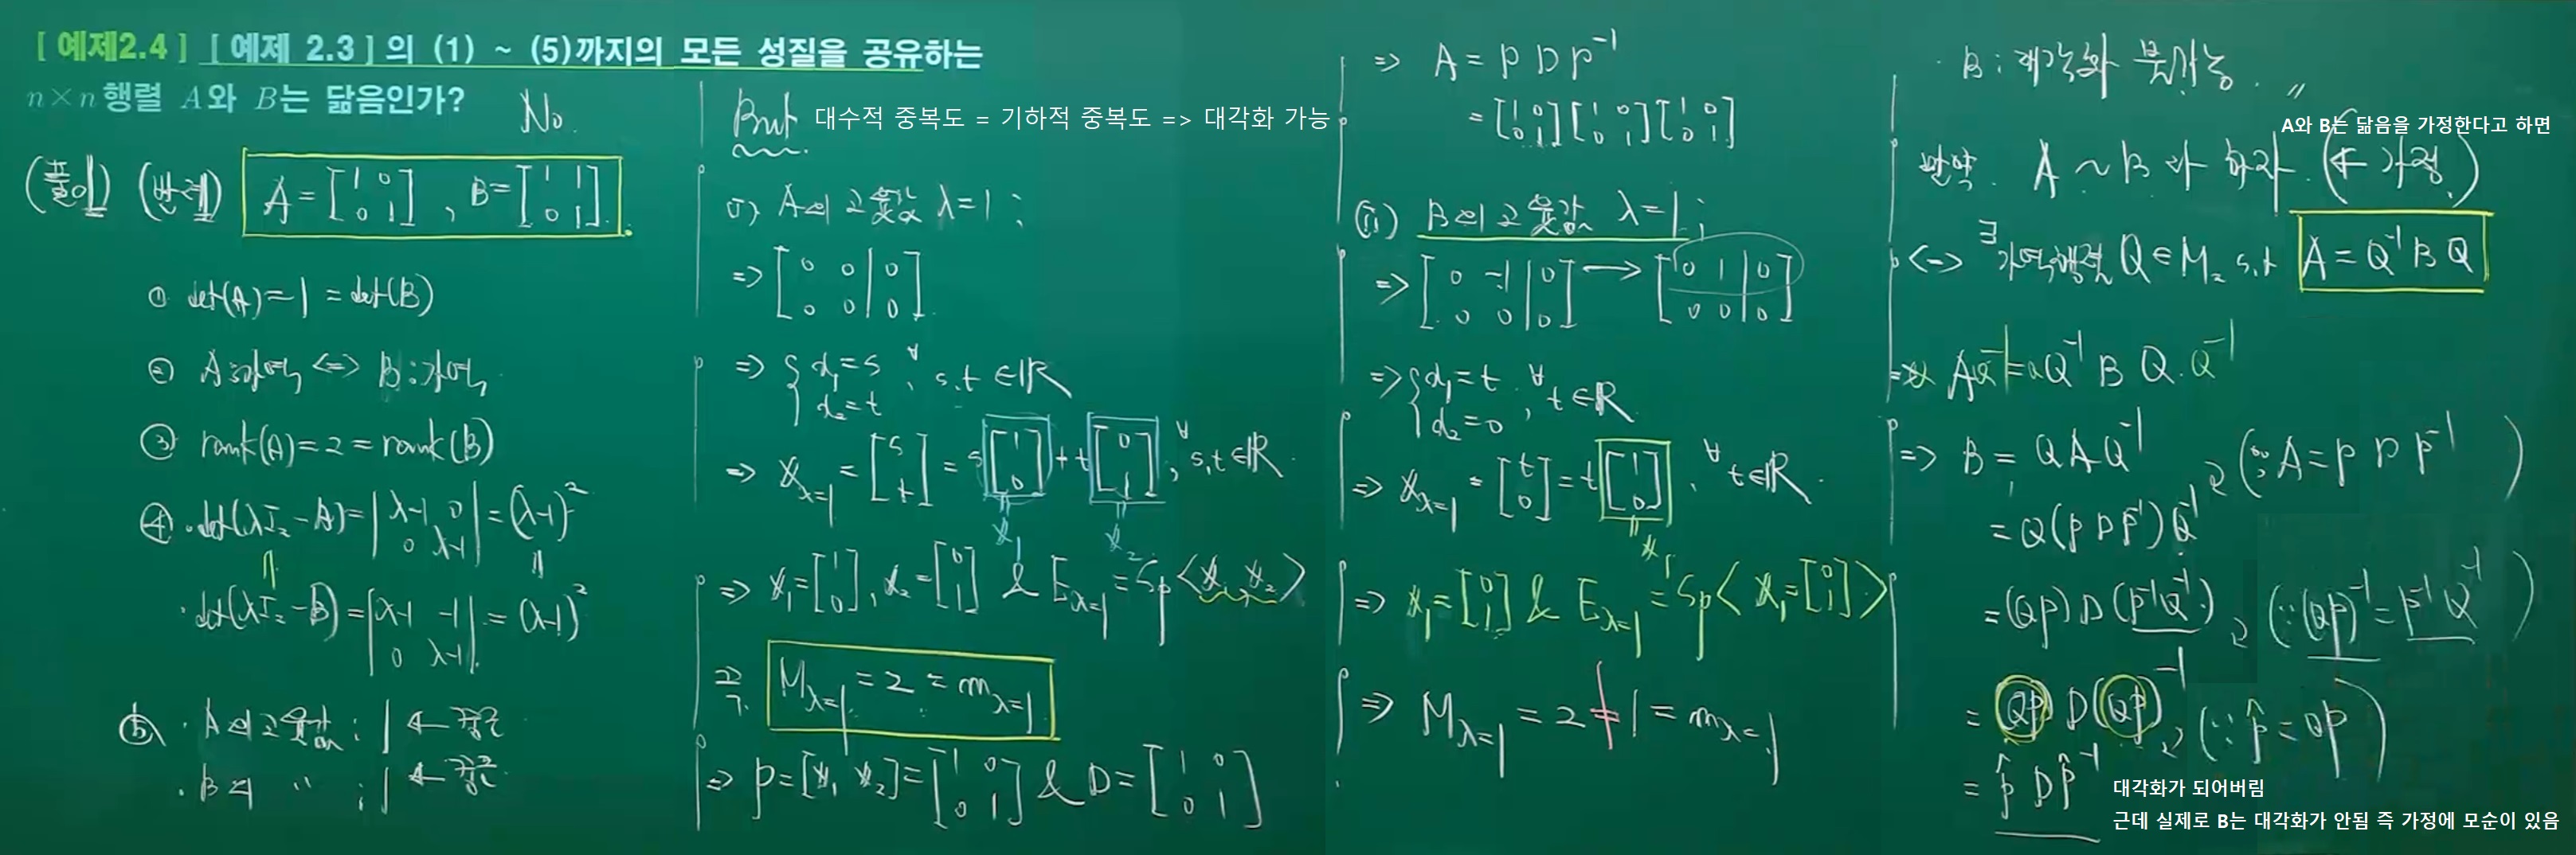 [ 예제2.4 ] [ 예제 2.3 ] 의 (1) ~ (5)까지의 모든 성질을 공유하는
n×n 행렬 A와 B는 닮음인가? No.
(풀이) (반례) A = [1 0; 0 1] , B = [1 1; 0 1].
① det(A) = 1 = det(B)
② A:가역 <=> B:가역
③ rank(A) = 2 = rank(B)
④ · det(λI₂ - A) = |λ-1 0; 0 λ-1| = (λ-1)²
· det(λI₂ - B) = |λ-1 -1; 0 λ-1| = (λ-1)²
⑤ · A의 고윳값 : 1 ← 중근
· B의 〃 : 1 ← 중근
But 대수적 중복도 = 기하적 중복도 => 대각화 가능
i) A의 고윳값 λ=1 ;
=> [0 0 | 0; 0 0 | 0]
=> { x₁ = s, x₂ = t , ∀s,t ∈ ℝ
=> x_{λ=1} = [s; t] = s[1; 0] + t[0; 1], ∀s,t ∈ ℝ.
x₁ x₂
=> x₁ = [1; 0], x₂ = [0; 1] & E_{λ=1} = Sp<x₁, x₂>
=> M_{λ=1} = 2 = m_{λ=1}
=> P = [x₁ x₂] = [1 0; 0 1] & D = [1 0; 0 1]
=> A = P D P⁻¹
= [1 0; 0 1][1 0; 0 1][1 0; 0 1]
(ii) B의 고윳값 λ=1 ;
=> [0 -1 | 0; 0 0 | 0] → [0 1 | 0; 0 0 | 0]
=> { x₁ = t, x₂ = 0 , ∀t ∈ ℝ
=> x_{λ=1} = [t; 0] = t[1; 0], ∀t ∈ ℝ.
x₁
=> x₁ = [0; 1] & E_{λ=1} = Sp< x₁ = [0; 1] >
=> M_{λ=1} = 2 ≠ 1 = m_{λ=1}
· B : 대각화 불가능. 〃
A와 B는 닮음을 가정한다고 하면
만약 A ~ B 라 하자. (← 가정.)
<=> ∃가역행렬 Q ∈ M₂ s.t A = Q⁻¹ B Q
=> A Q⁻¹ = Q⁻¹ B Q · Q⁻¹
=> B = Q A Q⁻¹ (∵ A = P D P⁻¹)
= Q(P D P⁻¹)Q⁻¹
= (QP) D (P⁻¹Q⁻¹) (∵ (QP)⁻¹ = P⁻¹Q⁻¹)
= (QP) D (QP)⁻¹ (∵ P̂ = QP)
= P̂ D P̂⁻¹
대각화가 되어버림
근데 실제로 B는 대각화가 안됨 즉 가정에 모순이 있음